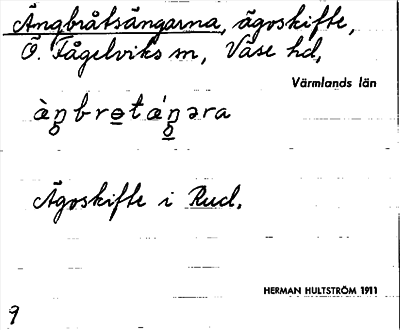 Ängbråtsängarna, ägoskifte,
Ö. Fågelviks sn, Väse hd,
Värmlands län
Ägoskifte i Rud.
HERMAN HULTSTRÖM 1911
9